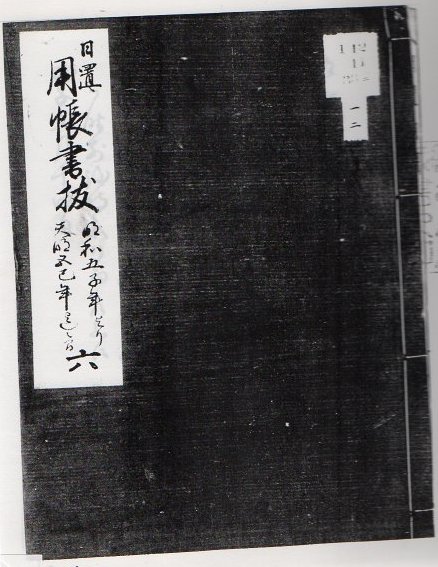 日置
用帳書抜
明和五子年より
天明五巳年迄
六
一二